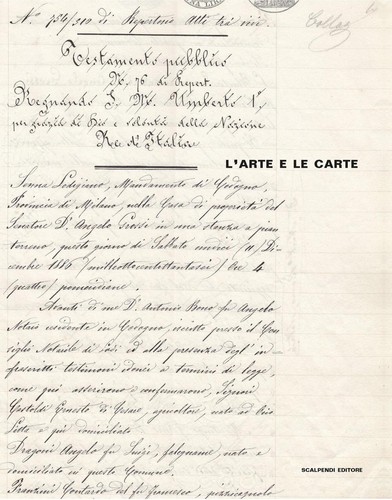 N.° 754/210 di Repertorio Atti tra vivi
Testamento pubblico
N. 76 di Repert.
Regnando S. M. Umberto I°,
per grazia di Dio e volontà della Nazione
Re d'Italia
L'ARTE E LE CARTE
Senna Lodigiano, Mandamento di Codogno,
Provincia di Milano, nella Casa di proprietà del
Senatore D.r Angelo Grossi in una stanza a pian
terreno, questo giorno di Sabbato undici /11/ Di-
cembre 1886 /milleottocentottantasei/ Ore 4
/quattro/ pomeridiane.
Avanti di me D.r Antonio Bono fu Angelo
Notaio residente in Codogno, iscritto presso il Con-
siglio Notarile di Lodi ed alla presenza degl'in-
frascritti testimoni idonei a termini di legge,
come qui asserirono e confermarono, Signori
Castoldi Ernesto di Cesare, agricoltore, nato ad
e qui domiciliato
Dragoni Angelo fu Luigi, falegname, nato e
domiciliato in questo Comune.
Franzini Contardo del fu Francesco, pizzicagnolo
SCALPENDI EDITORE